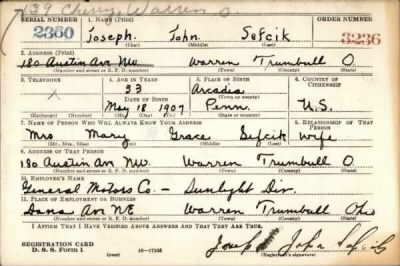 139 Cherry, Warren O.
SERIAL NUMBER 1. NAME (Print) ORDER NUMBER
2360 Joseph. John. Sefcik 3236
(First) (Middle) (Last)
2. ADDRESS (Print)
180 Austin Av NW Warren Trumbull O
(Number and street or R. F. D. number) (Town) (County) (State)
3. TELEPHONE 4. AGE IN YEARS 5. PLACE OF BIRTH 6. COUNTRY OF CITIZENSHIP
X 33 Arcadia
DATE OF BIRTH (Town or county)
May 18 1907 Penn. U.S.
(Exchange) (Number) (Mo.) (Day) (Yr.) (State or country)
7. NAME OF PERSON WHO WILL ALWAYS KNOW YOUR ADDRESS 8. RELATIONSHIP OF THAT PERSON
Mrs Mary Grace Sefcik Wife
(Mr., Mrs., Miss) (First) (Middle) (Last)
9. ADDRESS OF THAT PERSON
180 Austin Av NW. Warren Trumbull O
(Number and street or R. F. D. number) (Town) (County) (State)
10. EMPLOYER'S NAME
General Motors Co - Sunlight Div.
11. PLACE OF EMPLOYMENT OR BUSINESS
Dana Av NE Warren Trumbull Ohio
(Number and street or R. F. D. number) (Town) (County) (State)
I AFFIRM THAT I HAVE VERIFIED ABOVE ANSWERS AND THAT THEY ARE TRUE.
REGISTRATION CARD
D. S. S. Form 1 16-17105 Joseph John Sefcik